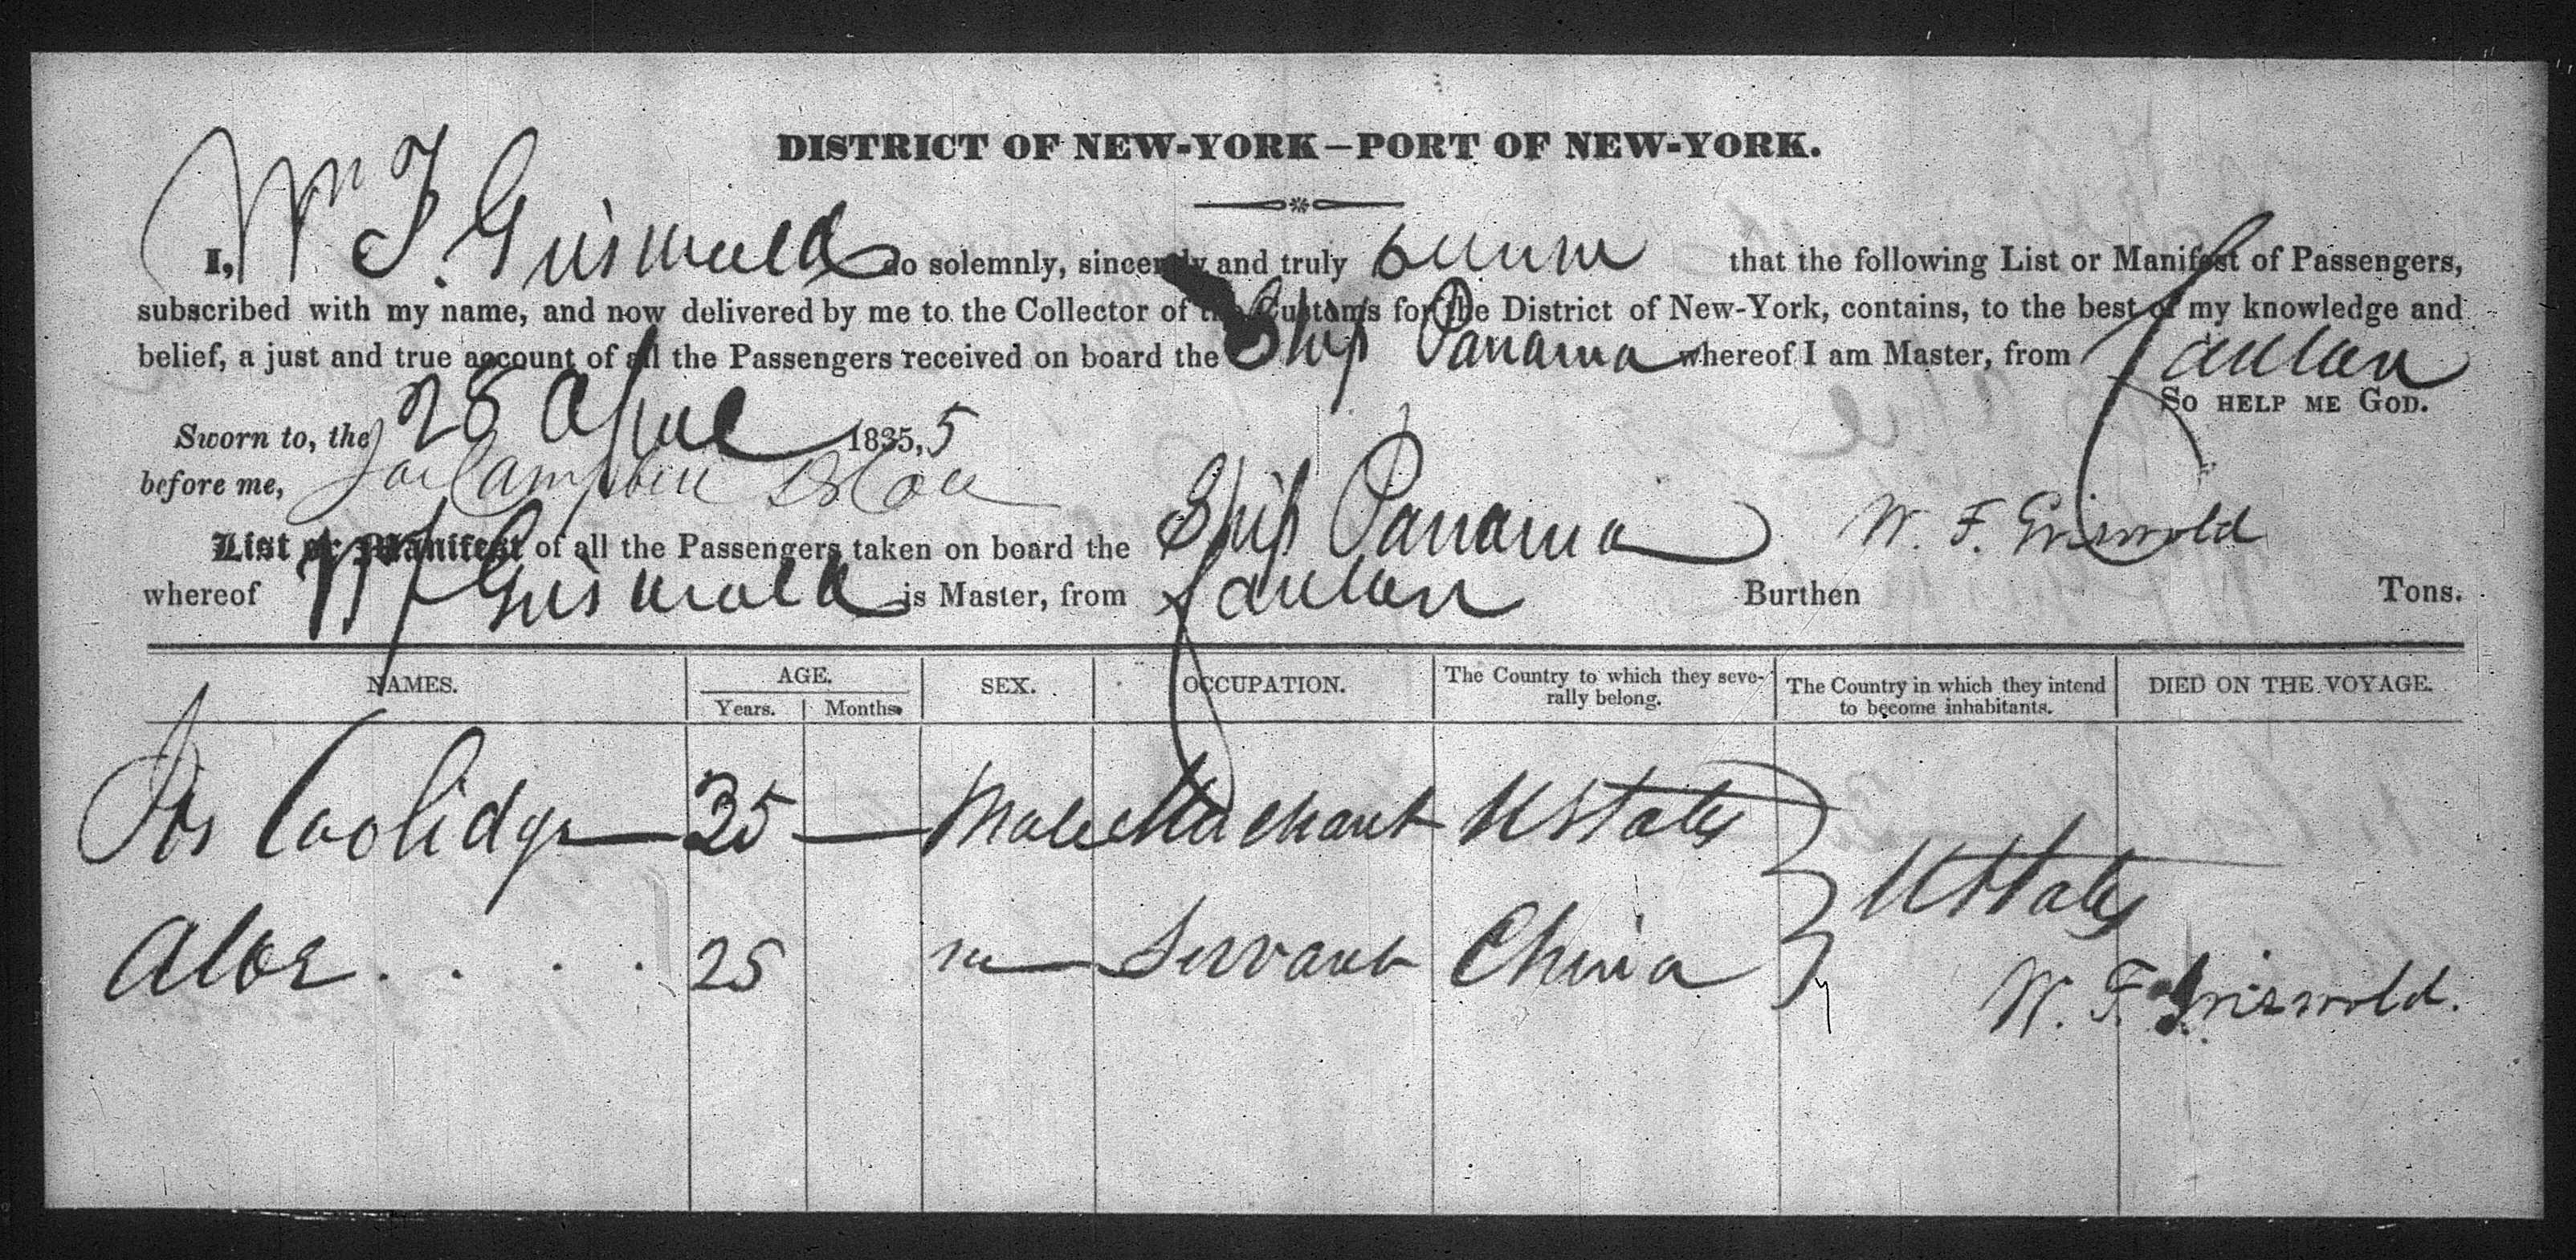 DISTRICT OF NEW-YORK—PORT OF NEW-YORK.
I, Wm F. Griswold do solemnly, sincerely and truly swear that the following List or Manifest of Passengers,
subscribed with my name, and now delivered by me to the Collector of the Customs for the District of New-York, contains, to the best of my knowledge and
belief, a just and true account of all the Passengers received on board the Ship Panama whereof I am Master, from Canton
So help me God.
Sworn to, the 28 April 1835,5
before me, Campbell D Col
W. F. Griswold
List or Manifest of all the Passengers taken on board the Ship Panama
whereof W F Griswold is Master, from Canton Burthen Tons.
NAMES. AGE. Years. Months. SEX. OCCUPATION. The Country to which they severally belong. The Country in which they intend to become inhabitants. DIED ON THE VOYAGE.
Jos Coolidge — 35 — Male Merchant U States
U States
Aloe . . . . 25 m — Servant China
W. F. Griswold.